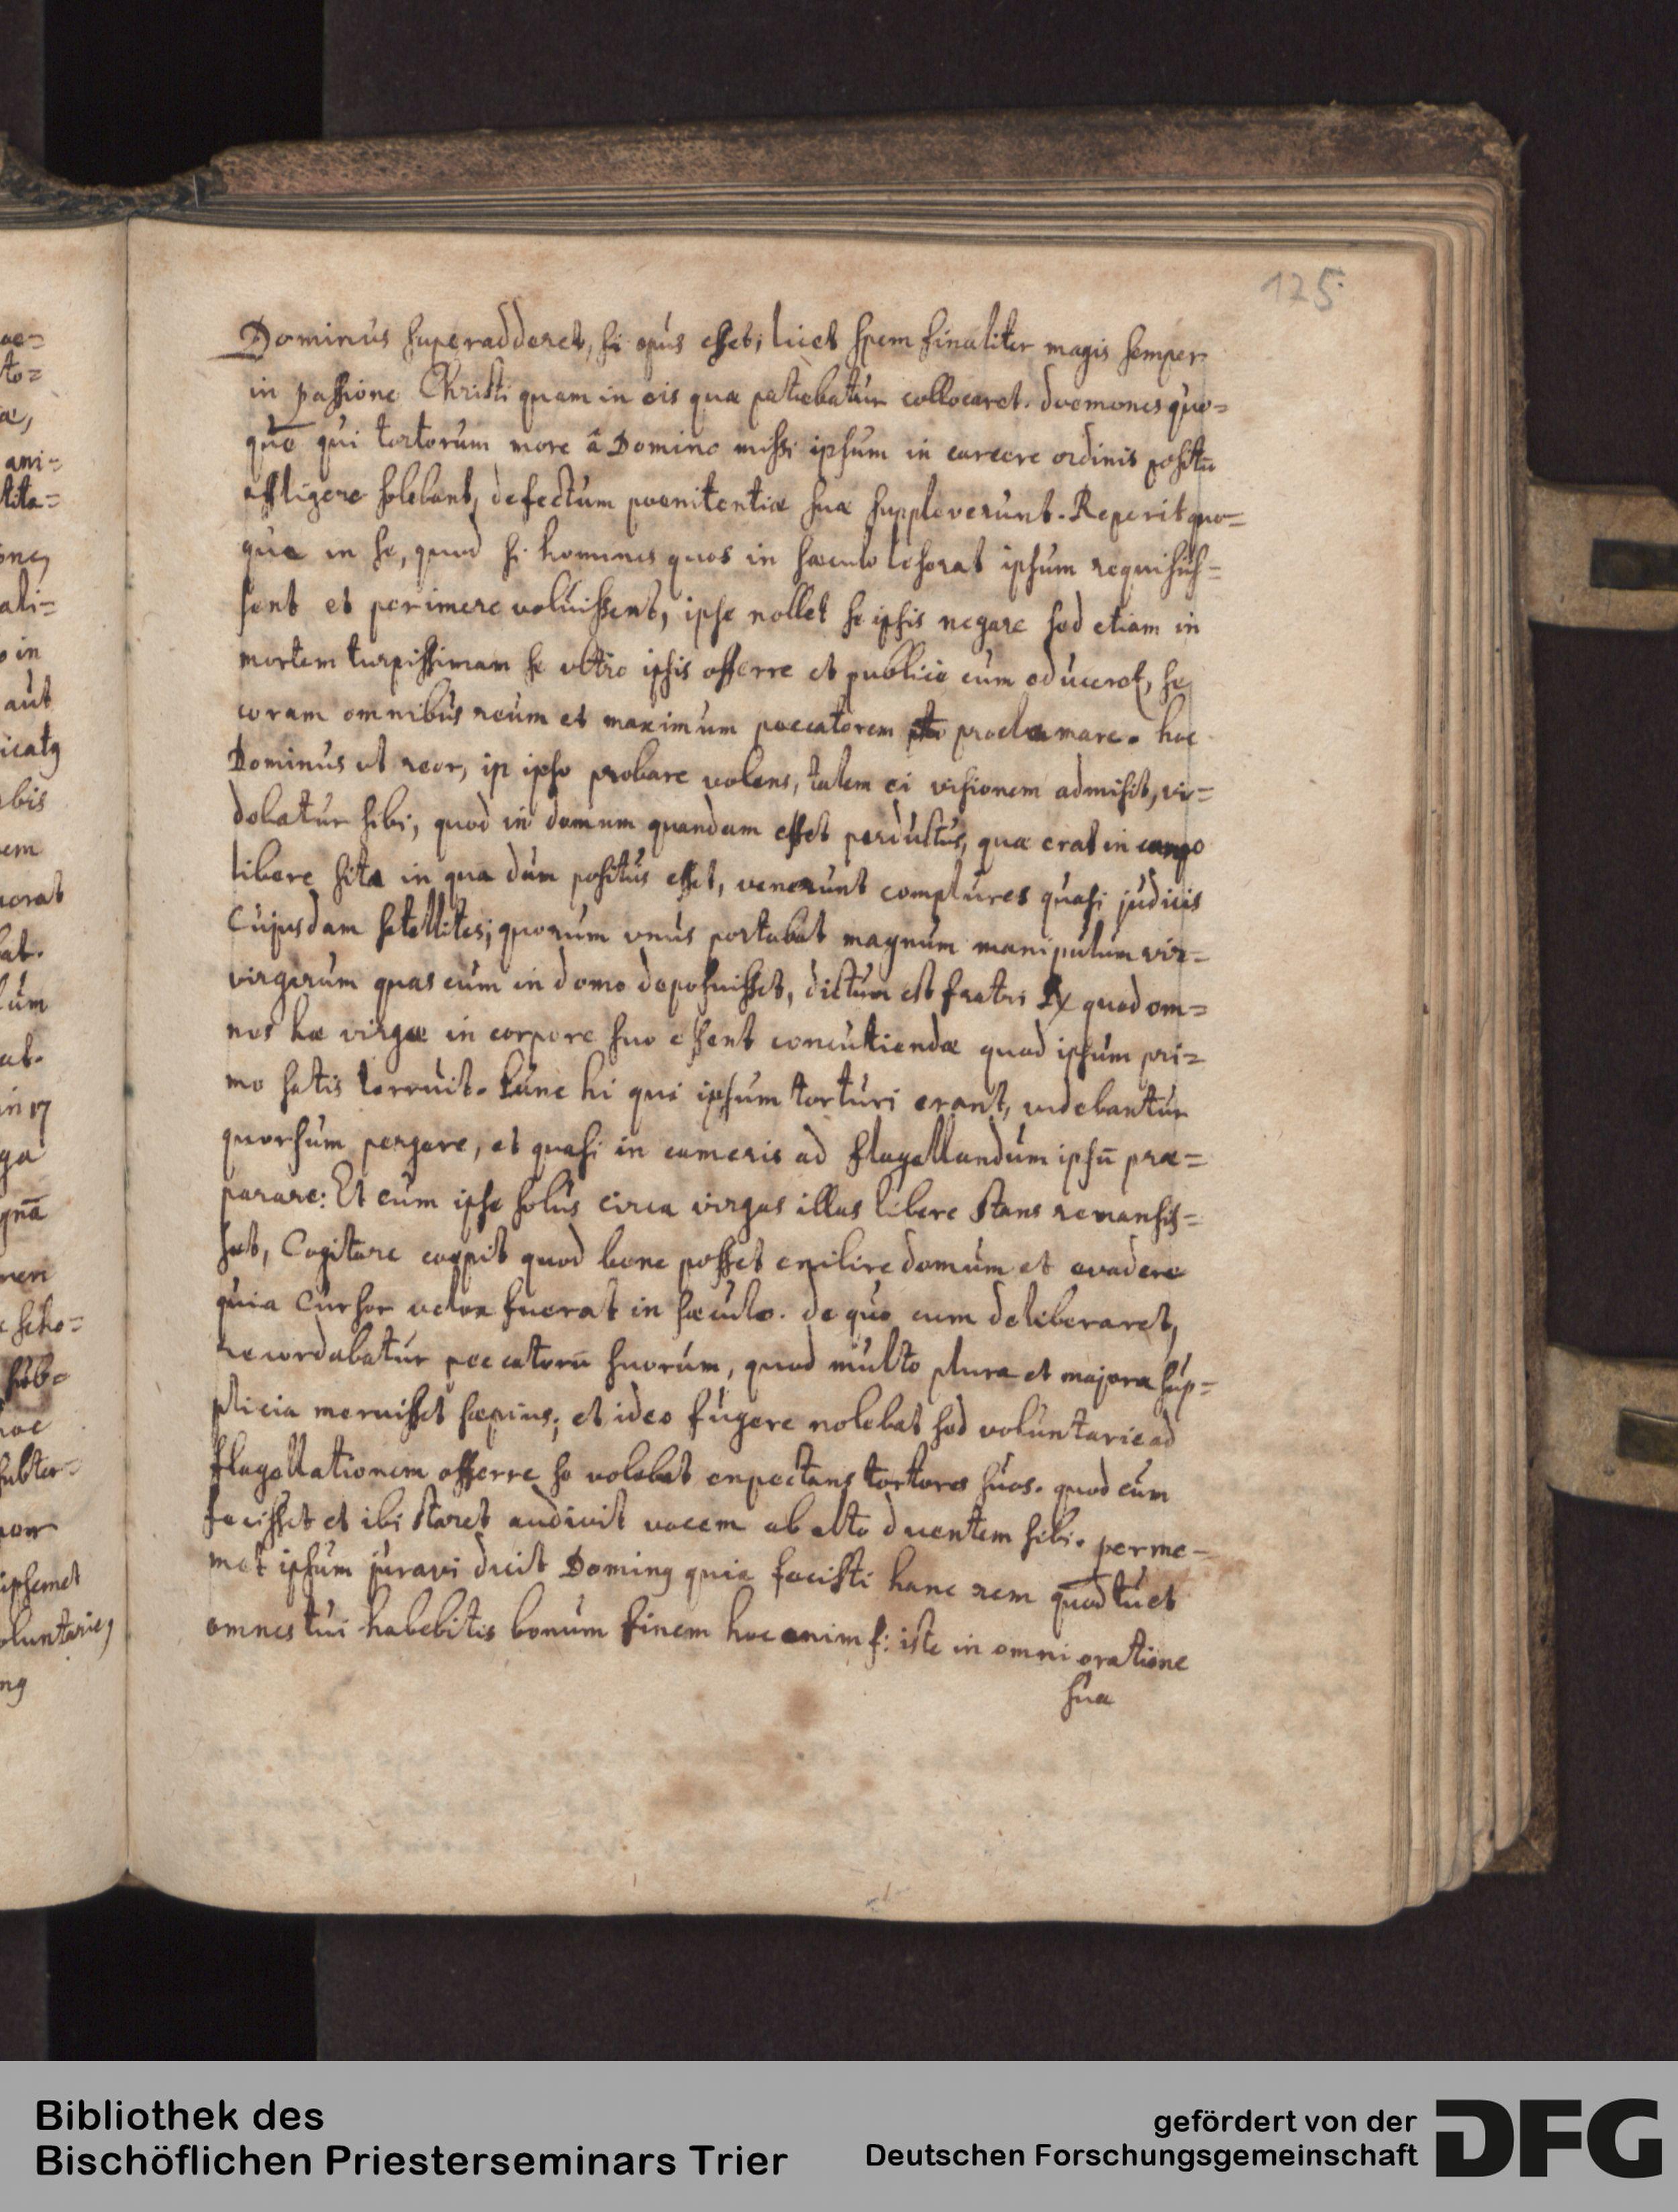 125
Dominus superadderet, si opus esset, licet spem finaliter magis semper
in passione Christi quam in eis quæ patiebatur collocaret. dvemones quo=
que qui tortorum more â Domino missi ipsum in carcere ordinis positū
affligere solebant, defectum poenitentiæ suæ suppleverunt. Reperit quo=
que in se, quod si homines quos in sæculo leserat ipsum requisis=
sent et perimere voluissent, ipse nollet se ipsis negare sed etiam in
mortem turpissimam se ultro ipsis offerre et publice cum educeret, se
coram omnibus reum et maximum peccatorem proclamare. hoc
Dominus ut reor, in ipso probare volens, talem ei visionem admisit, vi=
debatur sibi, quod in domum quandam esset perductus, quæ erat in campo
libere sita in qua dum positus esset, venerunt complures quasi judicis
Cujusdam satellites; quorum vnus portabat magnum manipulum vir=
virgarum quas cum in domo deposuisset, dictum est fratri quod om=
nes hæ virgæ in corpore suo essent concutiendæ quod ipsum pri=
mo satis terruit. tunc hi qui ipsum torturi erant, videbantur
quorsum pergere, et quasi in cameris ad flagellandum ipsū præ=
parare: Et cum ipse solus circa virgas illas libere stans remansis=
set, Cogitare coepit quod bene posset exilire domum et evadere
quia Cursor velox fuerat in sæculo. de quo cum deliberaret,
recordabatur peccatorū suorum, quod multo plura et majora sup=
plicia meruisset sæpius; et ideo fugere nolebat sed voluntarie ad
flagellationem offerre se volebat expectans tortores suos. quod cum
fecisset et ibi staret audivit vocem ab alto dicentem sibi. per me-
met ipsum juravi dicit Dominꝰ quia fecisti hanc rem quod tu et
omnes tui habebitis bonum finem hoc enim f: iste in omni oratione
sua
Bibliothek des
Bischöflichen Priesterseminars Trier
gefördert von der
Deutschen Forschungsgemeinschaft
DFG